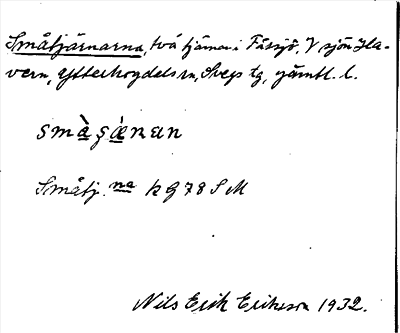 Småtjärnarna, två tjärnar i Fåssjö, V sjön Hla-
vern, Ytterhogdals sn, Svegs tg, Jämtl. l.
smȧ̀ʂæ̀nan
Småtj. na k G 78 S M
Nils Erik Eriksson 1932.